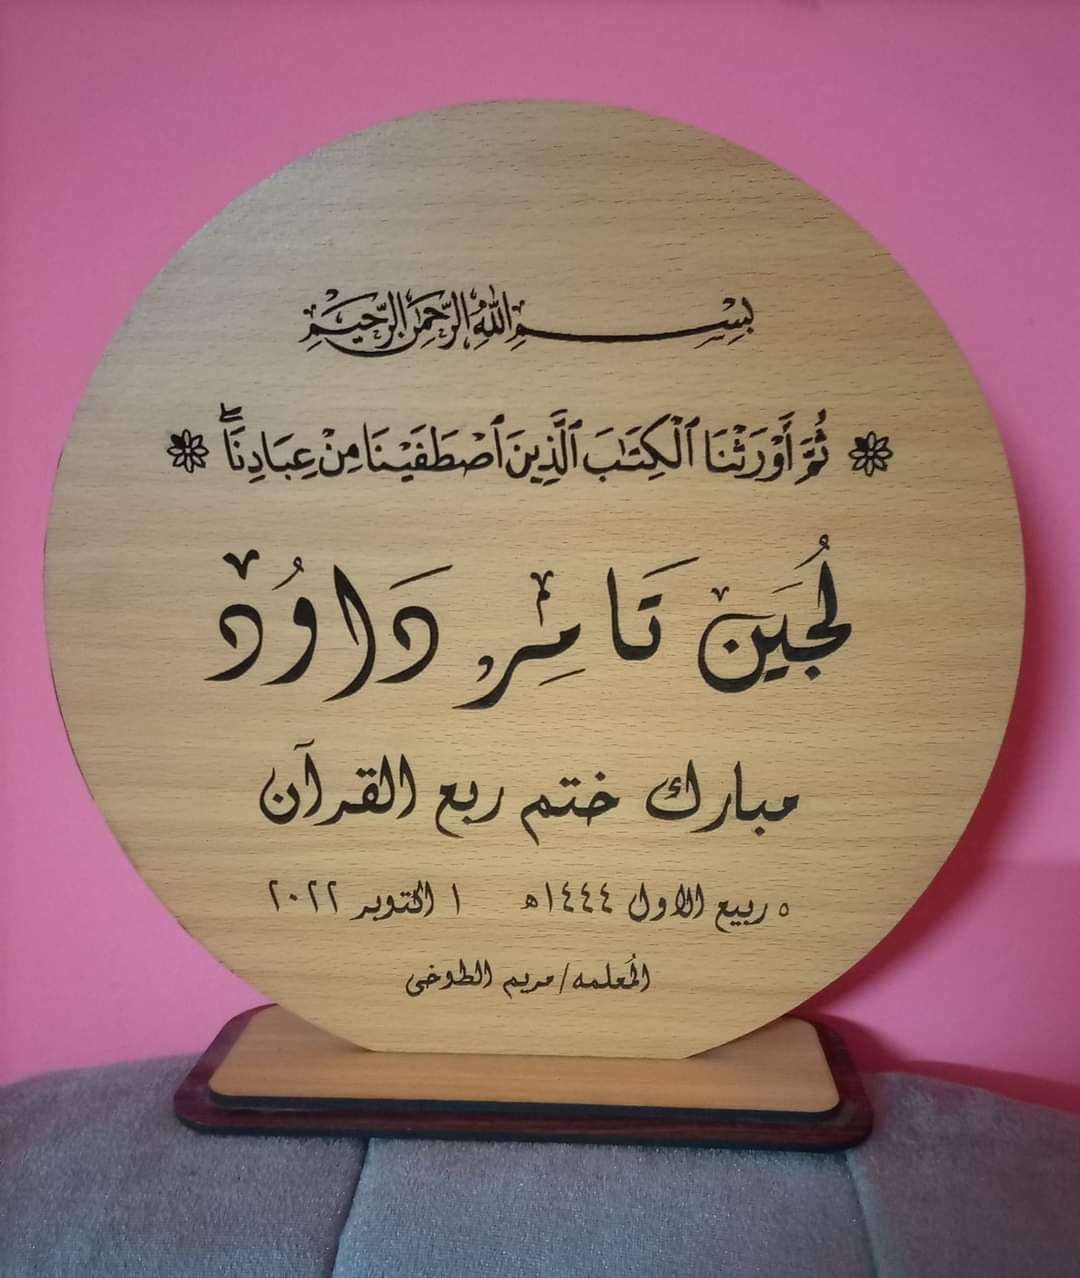 بِسْمِ اللهِ الرَّحْمَنِ الرَّحِيْمِ
ثُمَّ أَوْرَثْنَا ٱلْكِتَٰبَ ٱلَّذِينَ ٱصْطَفَيْنَا مِنْ عِبَادِنَاۖ
لُجَيْن تَامِر دَاوُد
مبارك ختم ربع القرآن
٥ ربيع الاول ١٤٤٤ه ١ اكتوبر ٢٠٢٢
المُعلمه/مريم الطوخى